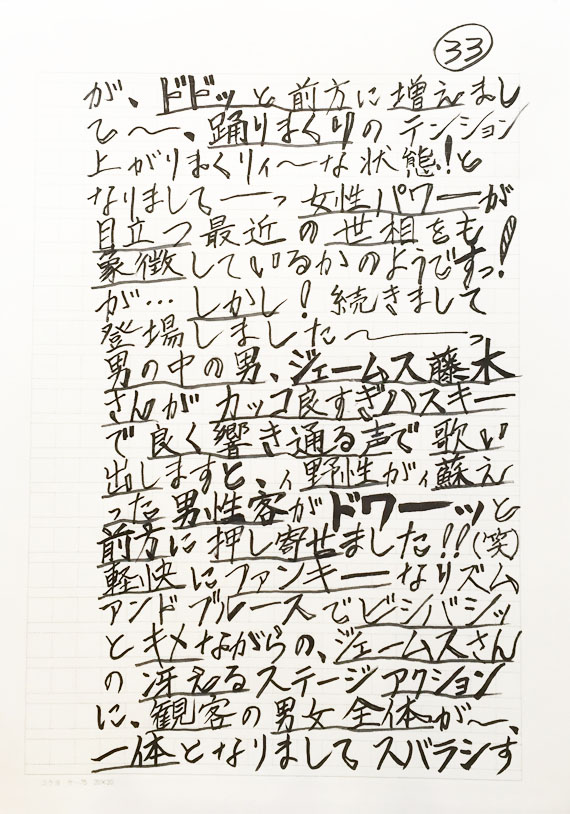 33
が、ドドッと前方に増えまし
て〜〜、踊りまくりのテンション
上がりまくりィ〜な状態!と
なりまして――っ女性パワーが
目立つ最近の世相をも
象徴しているかのようですっ!
が…しかし!続きまして
登場しました〜――っ
男の中の男、ジェームス藤木
さんがカッコ良すぎハスキー
で良く響き通る声で歌い
出しますと、〃野性が〃蘇え
った男性客がドワーーッと
前方に押し寄せました!!(笑)
軽快にファンキーなリズム
アンドブルースでビシバシッ
とキメながらの、ジェームスさん
の冴えるステージアクション
に、観客の男女全体が〜、
一体となりましてスバラシす